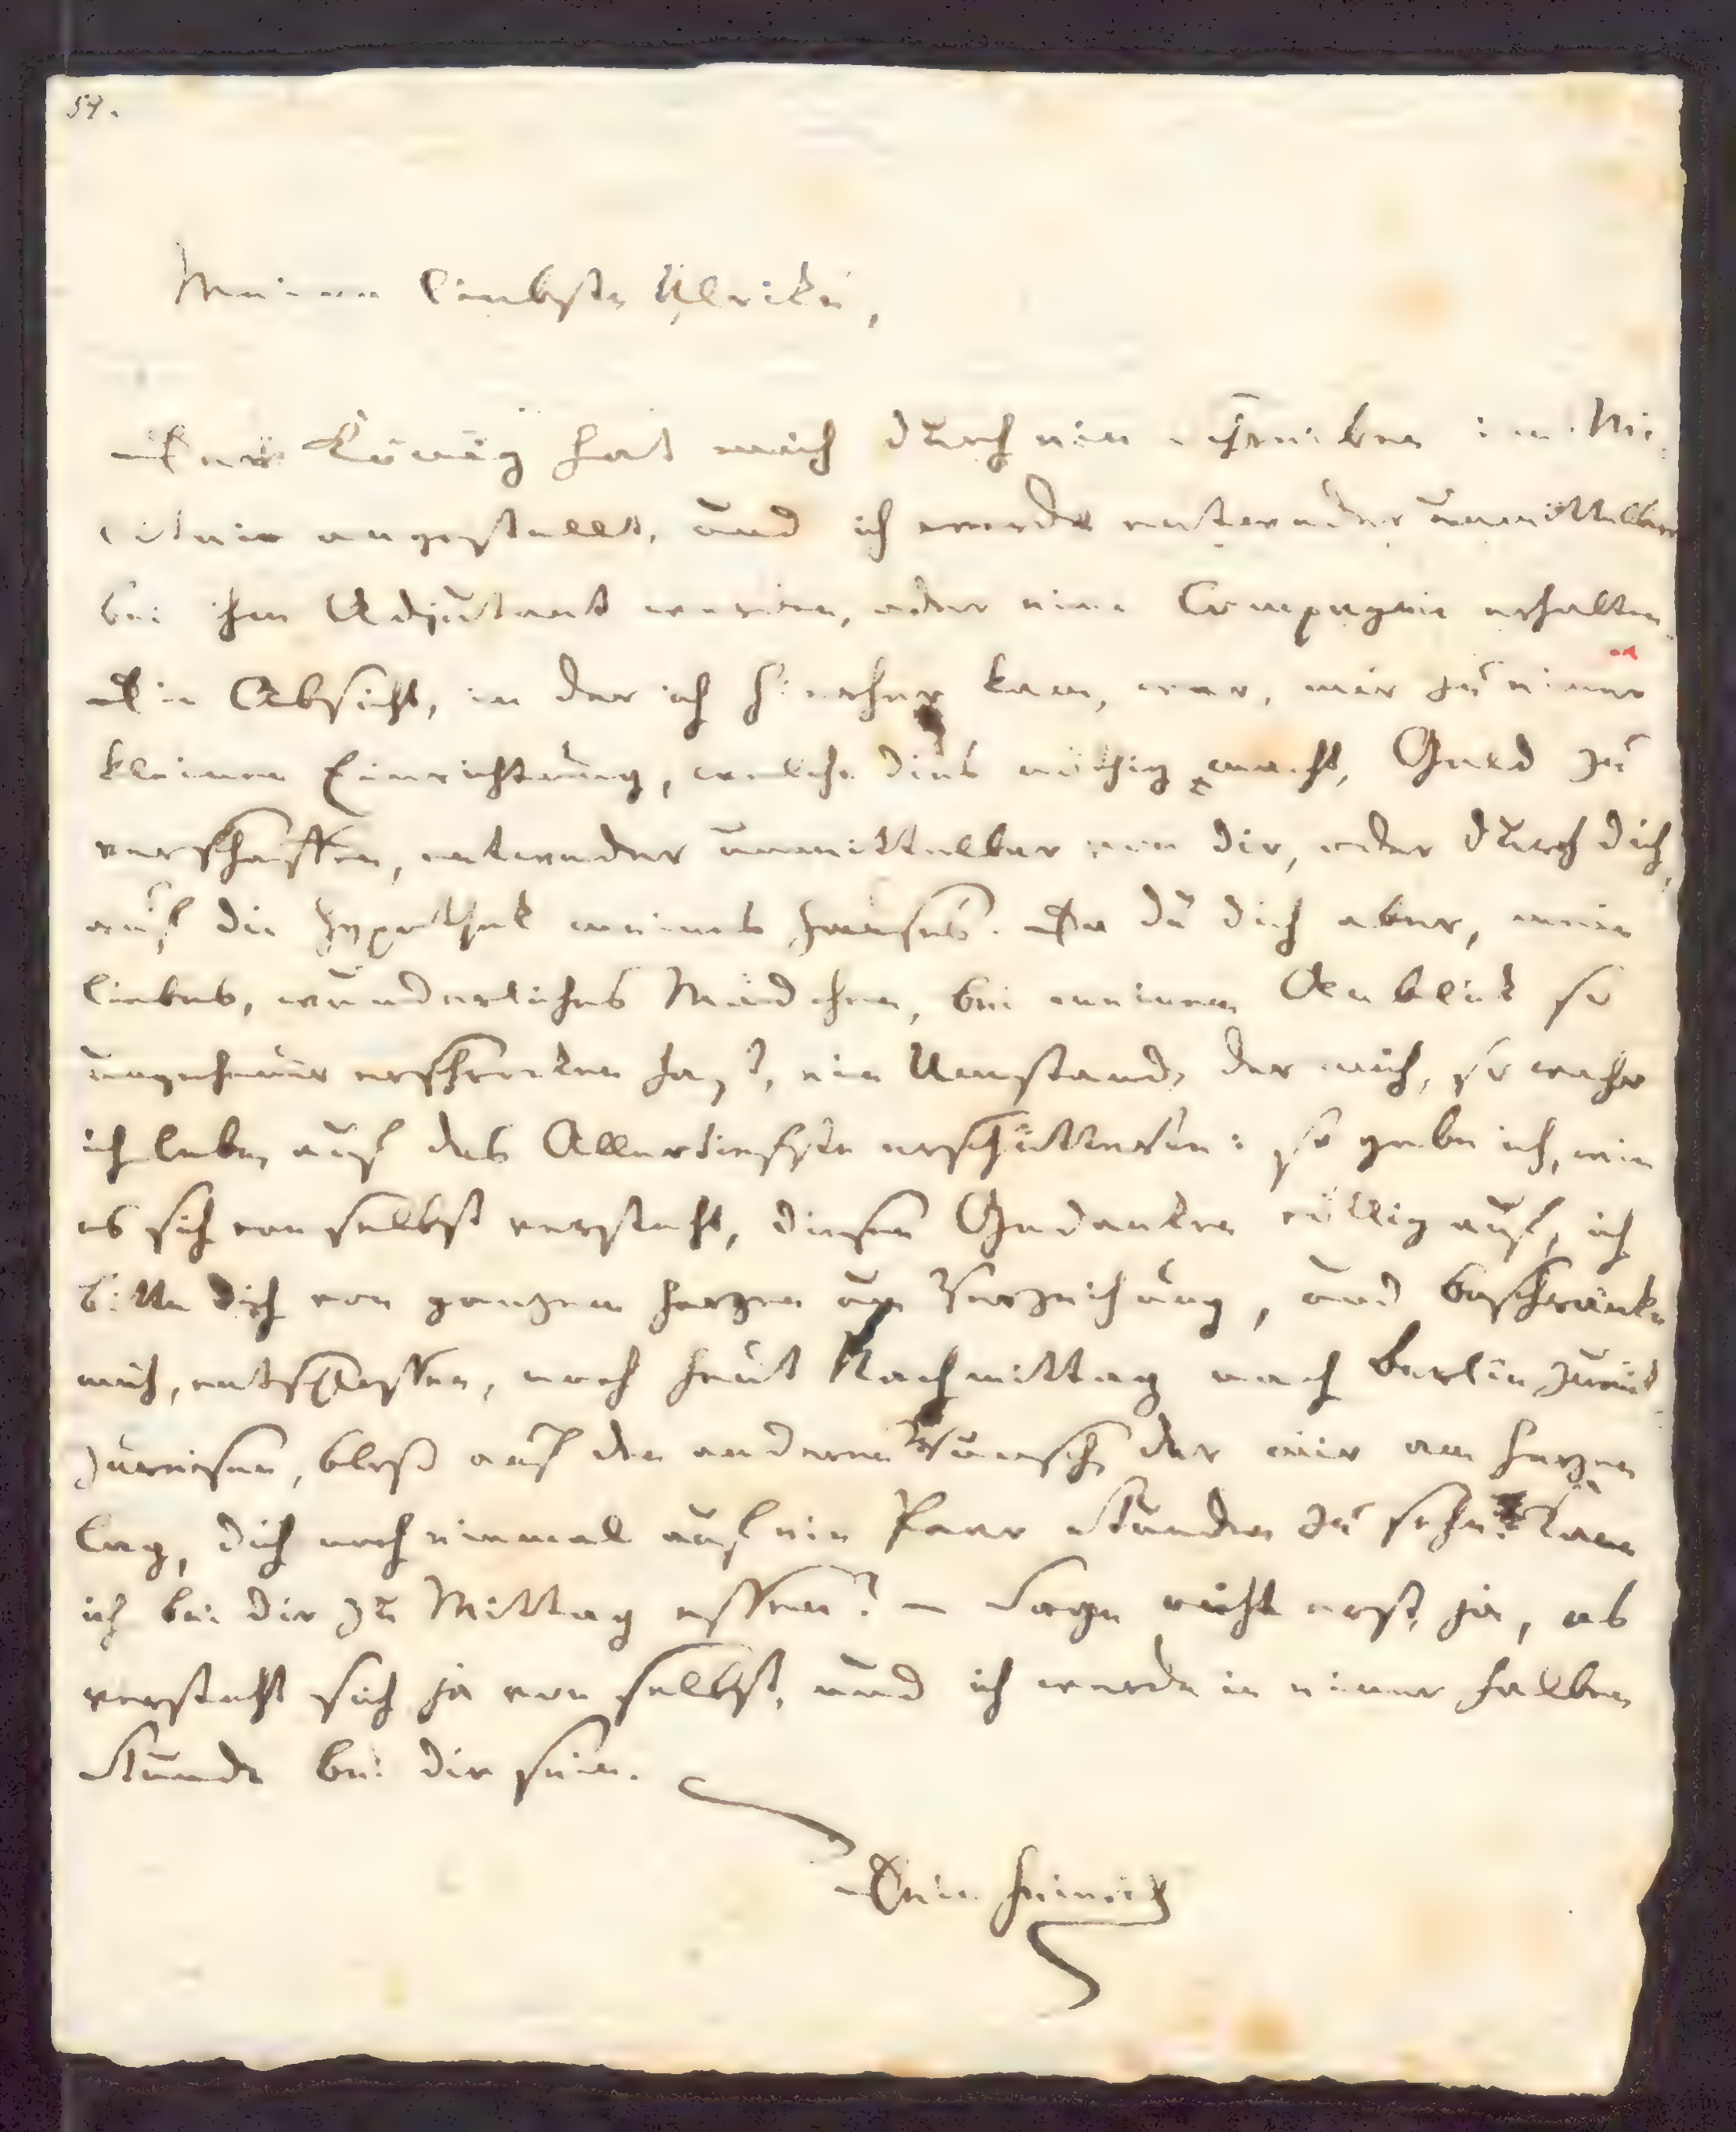 54.
Meine liebste Ulrike,
Der König hat mich durch ein Schreiben im Mi-
litair angestellt, und ich werde entweder unmittelbar
bei ihm Adjutant werden, oder eine Compagnie erhalten.
Die Absicht, in der ich hierher kam, war, mir zu einer
kleinen Einrichtung, welche dies nöthig macht, Geld zu
verschaffen, entweder unmittelbar von dir, oder durch dich,
auf die Hypothek meines Hauses. Da du dich aber, mein
liebes, wunderliches Mädchen, bei meinem Anblick so
ungeheuer erschrocken hast, ein Umstand, der mich, so wahr
ich lebe, auf das Allertiefste erschütterte: so gebe ich, wie
es sich von selbst versteht, diesen Gedanken völlig auf, ich
bitte dich von ganzem Herzen um Verzeihung, und beschränke
mich, entschlossen, noch heut Nachmittag nach Berlin zurück
zureisen, bloß auf den anderen Wunsch, der mir am Herzen
lag, dich noch einmal auf ein Paar Stunden zu sehn. Kann
ich bei dir zu Mittag essen? – Sage nicht erst ja, es
versteht sich ja von selbst, und ich werde in einer halben
Stunde bei dir sein.
Dein Heinrich